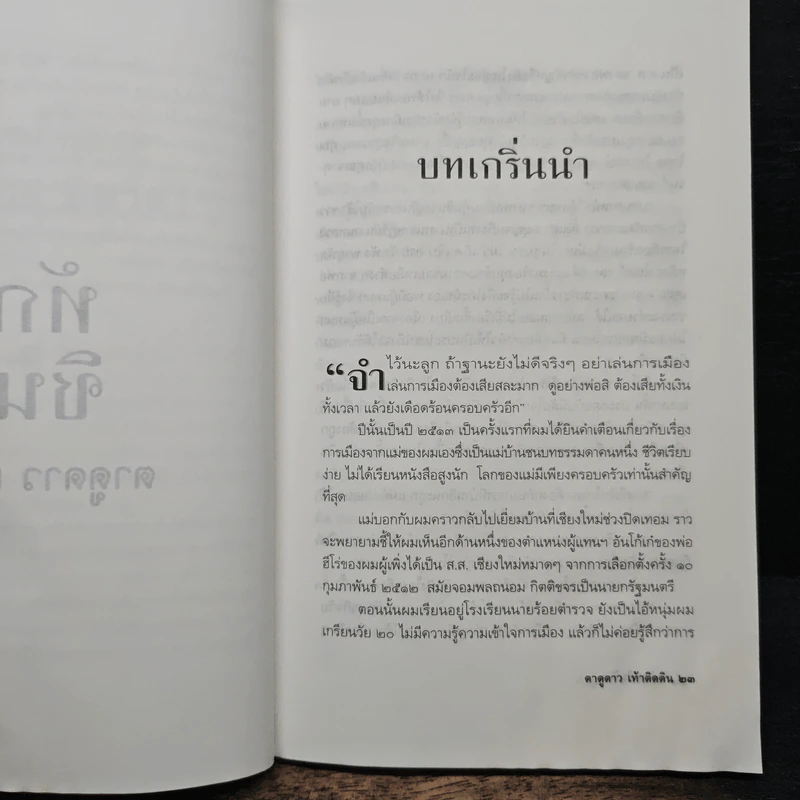 บทเกริ่นนำ
“จำไว้นะลูก ถ้าฐานะยังไม่ดีจริงๆ อย่าเล่นการเมือง
เล่นการเมืองต้องเสียสละมาก ดูอย่างพ่อสิ ต้องเสียทั้งเงิน
ทั้งเวลา แล้วยังเดือดร้อนครอบครัวอีก”
ปีนั้นเป็นปี ๒๕๑๓ เป็นครั้งแรกที่ผมได้ยินคำเตือนเกี่ยวกับเรื่อง
การเมืองจากแม่ของผมเองซึ่งเป็นแม่บ้านชนบทธรรมดาคนหนึ่ง ชีวิตเรียบ
ง่าย ไม่ได้เรียนหนังสือสูงนัก โลกของแม่มีเพียงครอบครัวเท่านั้นสำคัญ
ที่สุด
แม่บอกกับผมคราวกลับไปเยี่ยมบ้านที่เชียงใหม่ช่วงปิดเทอม ราว
จะพยายามชี้ให้ผมเห็นอีกด้านหนึ่งของตำแหน่งผู้แทนฯ อันโก้เก๋ของพ่อ
ฮีโร่ของผมผู้เพิ่งได้เป็น ส.ส. เชียงใหม่หมาดๆ จากการเลือกตั้งครั้ง ๑๐
กุมภาพันธ์ ๒๕๑๒ สมัยจอมพลถนอม กิตติขจรเป็นนายกรัฐมนตรี
ตอนนั้นผมเรียนอยู่โรงเรียนนายร้อยตำรวจ ยังเป็นไอ้หนุ่มผม
เกรียนวัย ๒๐ ไม่มีความรู้ความเข้าใจการเมือง แล้วก็ไม่ค่อยรู้สึกว่าการ
ตาดูดาว เท้าติดดิน ๒๓